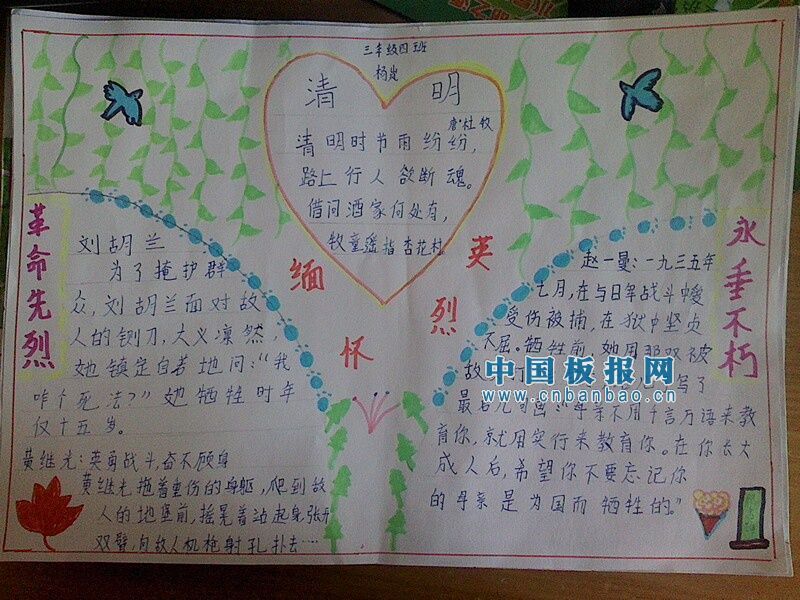 三年级四班
杨岚
清 明
唐·杜牧
清明时节雨纷纷,
路上行人欲断魂。
借问酒家何处有,
牧童遥指杏花村。
缅怀英烈
革命先烈
刘胡兰
为了掩护群
众,刘胡兰面对敌
人的铡刀,大义凛然,
她镇定自若地问:“我
咋个死法?”她牺牲时年
仅十五岁。
黄继光:英勇战斗,奋不顾身
黄继光拖着重伤的身躯,爬到敌
人的地堡前,摇晃着站起身,张开
双臂,向敌人机枪射孔扑去……
永垂不朽
赵一曼:一九三五年
七月,在与日军战斗中
受伤被捕,在狱中坚贞
不屈。牺牲前,她用那双被
故
写了
最后几句
不用千言万语来教
育你,就用实行来教育你。在你长大
成人后,希望你不要忘记你
的母亲是为国而牺牲的。”
中国板报网
www.cnbanbao.cn